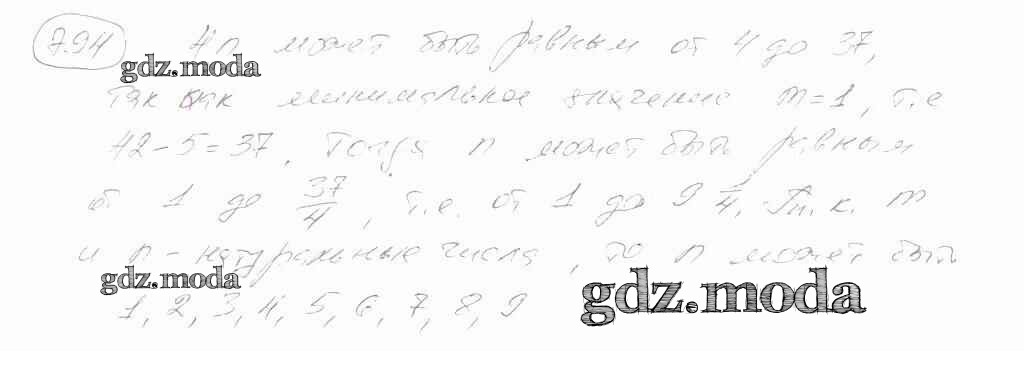 7.94 4n может быть равным от 4 до 37,
gdz.moda
так как минимальное значение m=1, т.е
42-5=37. Тогда n может быть равным
от 1 до 37/4, т.е. от 1 до 9 1/4. Т.к. m
и n - натуральные числа, то n может быть
gdz.moda gdz.moda
1, 2, 3, 4, 5, 6, 7, 8, 9